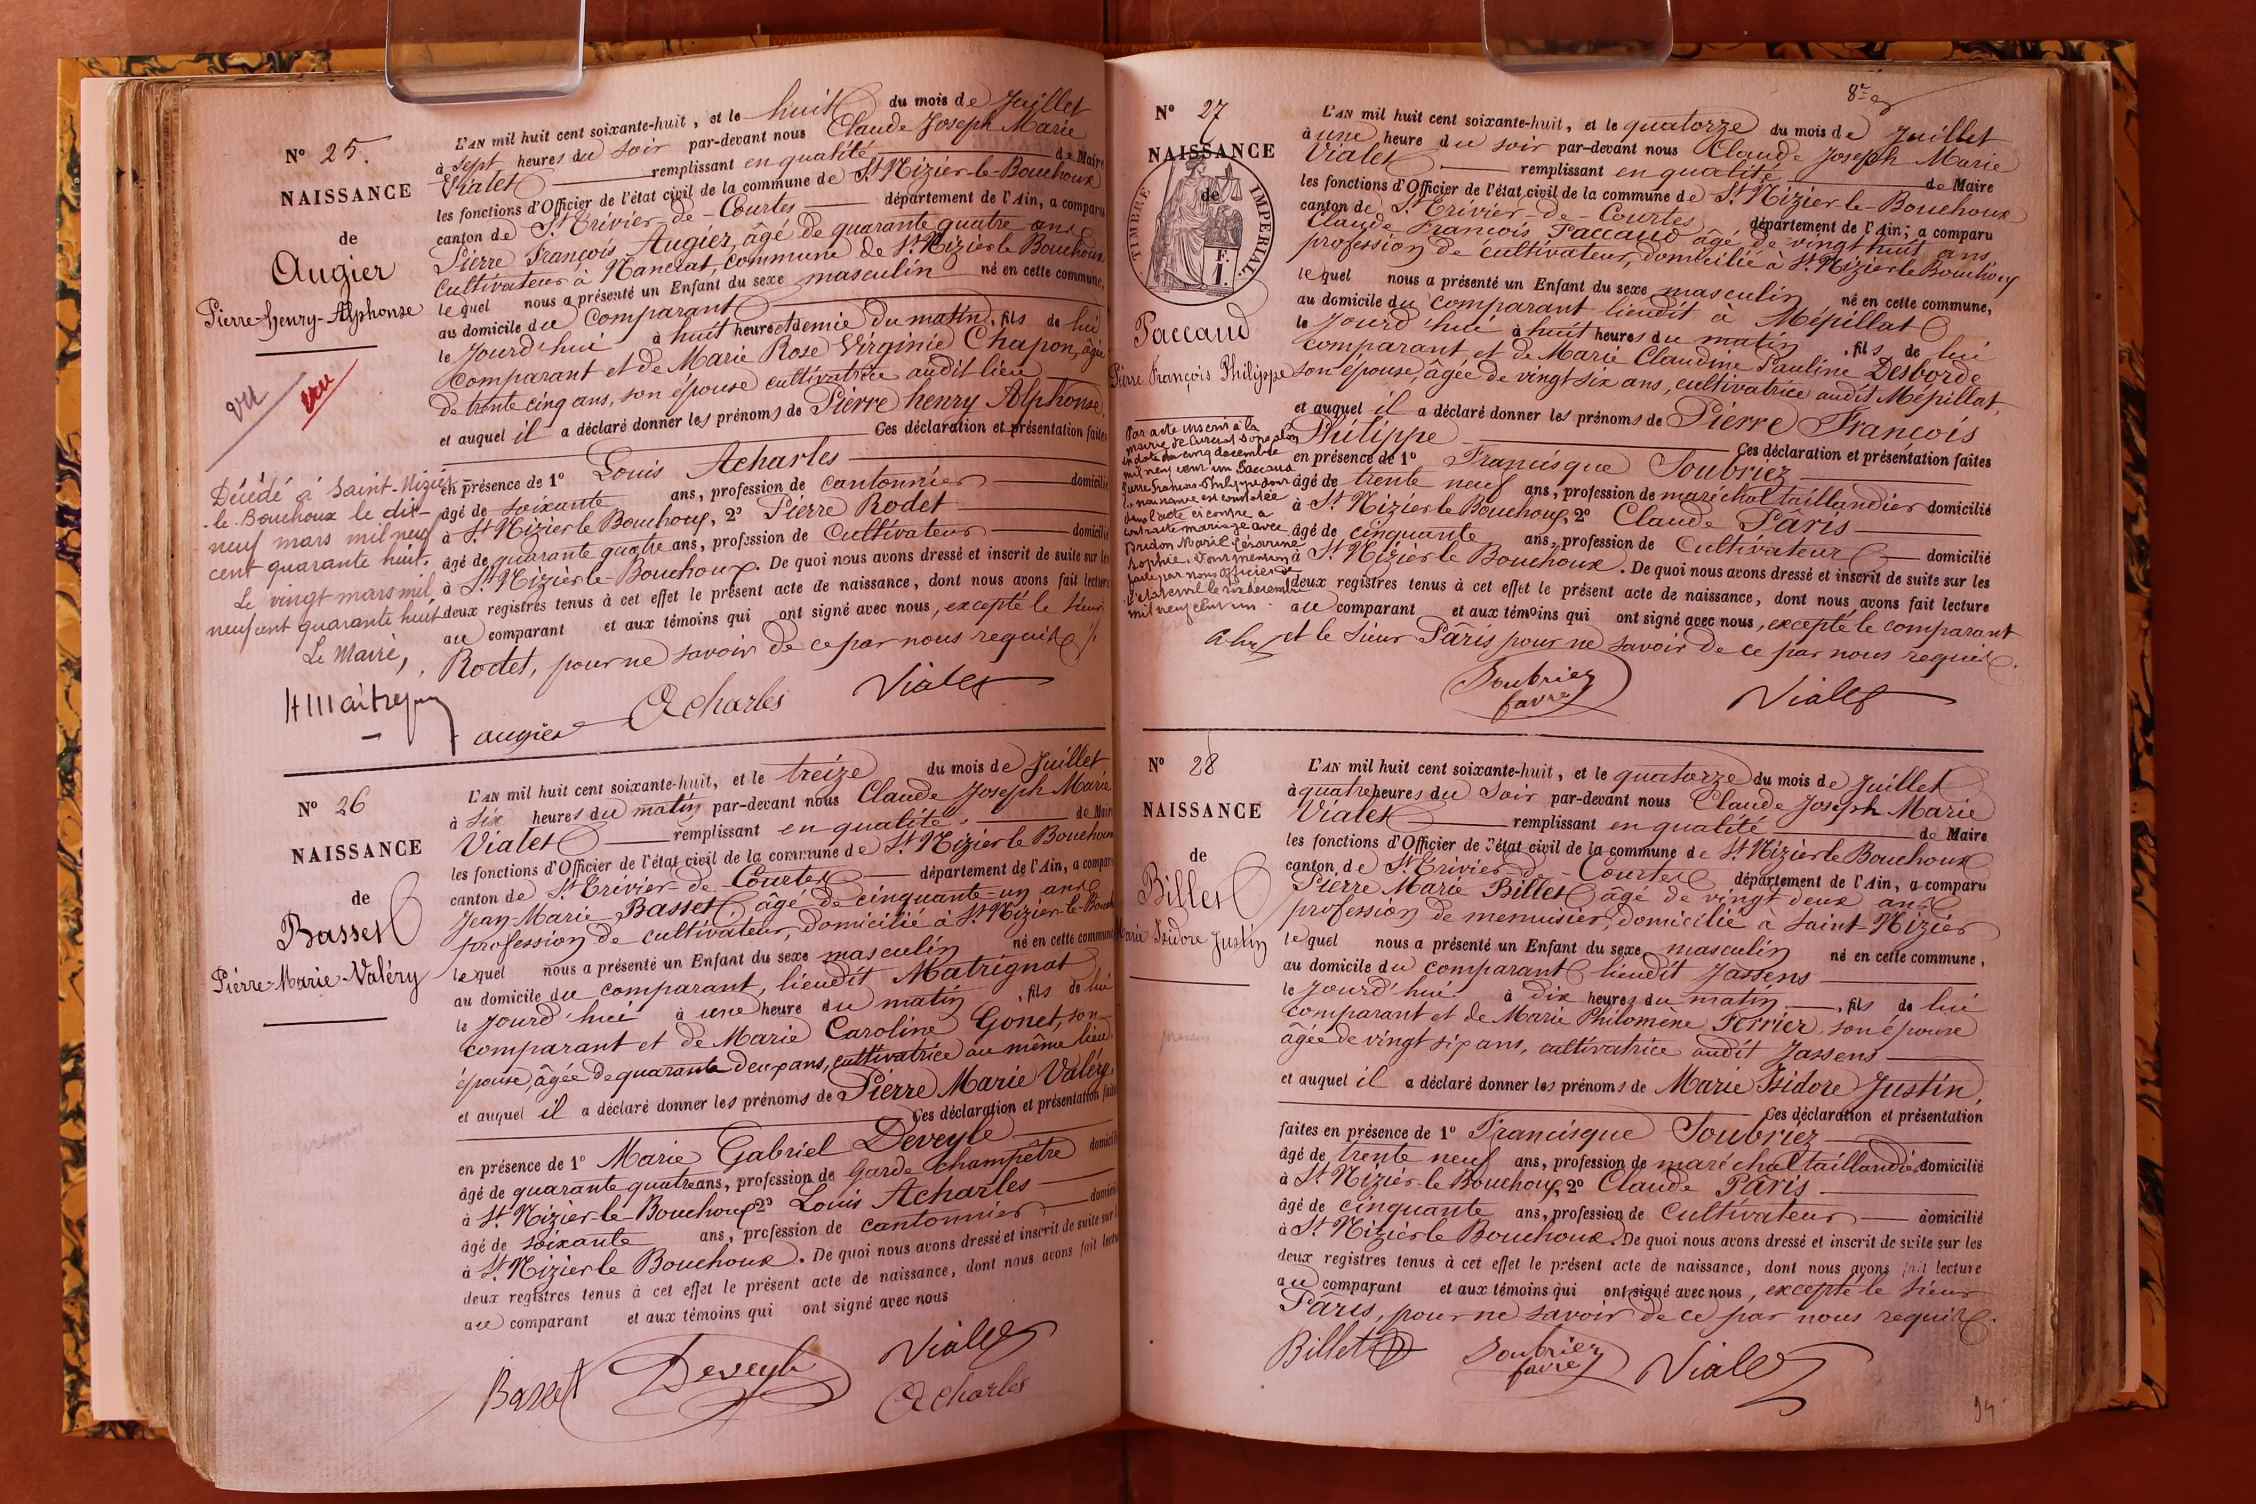 N° 25.
NAISSANCE
de
Augier
Pierre-henry-Alphonse
vu
vu
Décédé à Saint-Nizier
-le-Bouchoux le dix-
neuf mars mil neuf
cent quarante huit.
Le vingt mars mil
neuf cent quarante huit
Le Maire,
L'AN mil huit cent soixante-huit, et le huit du mois de Juillet
à sept heures du soir par-devant nous Claude Joseph Marie
Vialet remplissant en qualité de Maire
les fonctions d'Officier de l'état civil de la commune de St Nizier-le-Bouchoux
canton de St Trivier-de-Courtes département de l'Ain, a comparu
Pierre François Augier, âgé de quarante quatre ans
cultivateur à Mancrat, commune de St Nizier le Bouchoux
lequel nous a présenté un Enfant du sexe masculin né en cette commune,
au domicile du comparant
le jourd'hui à huit heures et demie du matin, fils de lui
comparant et de Marie Rose Virginie Chapon, âgée
de trente cinq ans, son épouse cultivatrice audit lieu
et auquel il a déclaré donner les prénoms de Pierre henry Alphonse.
Ces déclaration et présentation faites
en présence de 1° Louis Acharles
âgé de soixante ans, profession de cantonnier domicilié
à St Nizier le Bouchoux, 2° Pierre Rodet
âgé de quarante quatre ans, profession de Cultivateur domicilié
à St Nizier le Bouchoux. De quoi nous avons dressé et inscrit de suite sur les
deux registres tenus à cet effet le présent acte de naissance, dont nous avons fait lecture
au comparant et aux témoins qui ont signé avec nous, excepté le sieur
Rodet, pour ne savoir de ce par nous requis
augier Acharles Vialet
N° 26
NAISSANCE
de
Basset
Pierre-Marie-Valéry
L'AN mil huit cent soixante-huit, et le treize du mois de Juillet
à six heures du matin par-devant nous Claude Joseph Marie
Vialet remplissant en qualité de Maire
les fonctions d'Officier de l'état civil de la commune de St Nizier le Bouchoux
canton de St Trivier-de-Courtes département de l'Ain, a comparu
Jean-Marie Basset, âgé de cinquante-un ans
profession de cultivateur, domicilié à St Nizier-le-Bouch
lequel nous a présenté un Enfant du sexe masculin né en cette commune
au domicile du comparant, lieudit Matrignat
le jourd'hui à une heure du matin, fils de lui
comparant et de Marie Caroline Gonet, son
épouse, âgée de quarante deux ans, cultivatrice au même lieu
et auquel il a déclaré donner les prénoms de Pierre Marie Valéry.
Ces déclaration et présentation faites
en présence de 1° Marie Gabriel Deveyle
âgé de quarante quatre ans, profession de Garde champêtre domicilié
à St Nizier-le-Bouchoux 2° Louis Acharles
âgé de soixante ans, profession de cantonnier domicilié
à St Nizier le Bouchoux. De quoi nous avons dressé et inscrit de suite sur les
deux registres tenus à cet effet le présent acte de naissance, dont nous avons fait lecture
au comparant et aux témoins qui ont signé avec nous
Basset Deveyle Vialet
Acharles
N° 27
NAISSANCE
de
TIMBRE IMPERIAL
1 F.
Paccaud
Pierre François Philippe
Par acte inscrit à la
mairie de
en date du cinq décembre
mil neuf cent un Paccaud
Pierre François Philippe dont
la naissance est constatée
dans l'acte ci contre a
contracté mariage avec
Marie Césarine
Sophie. Dont mention
faite par nous Officier de
l'état civil le six décembre
mil neuf cent un.
L'AN mil huit cent soixante-huit, et le quatorze du mois de Juillet
à une heure du soir par-devant nous Claude Joseph Marie
Vialet remplissant en qualité de Maire
les fonctions d'Officier de l'état civil de la commune de St Nizier-le-Bouchoux
canton de St Trivier-de-Courtes département de l'Ain; a comparu
Claude François Paccaud âgé de vingt huit ans
profession de cultivateur, domicilié à St Nizier le Bouchoux
lequel nous a présenté un Enfant du sexe masculin né en cette commune,
au domicile du comparant lieudit à Mépillat
le jourd'hui à huit heures du matin, fils de lui
comparant, et de Marie Claudine Pauline Desborde
son épouse, âgée de vingt six ans, cultivatrice audit Mépillat,
et auquel il a déclaré donner les prénoms de Pierre François
Philippe Ces déclaration et présentation faites
en présence de 1° Francisque Soubriez
âgé de trente neuf ans, profession de maréchal taillandier domicilié
à St Nizier le Bouchoux, 2° Claude Pâris
âgé de cinquante ans, profession de Cultivateur domicilié
à St Nizier le Bouchoux. De quoi nous avons dressé et inscrit de suite sur les
deux registres tenus à cet effet le présent acte de naissance, dont nous avons fait lecture
au comparant et aux témoins qui ont signé avec nous, excepté le comparant
et le sieur Pâris pour ne savoir de ce par nous requis.
Soubriez
favre
Vialet
N° 28
NAISSANCE
de
Billet
Marie Isidore Justin
L'AN mil huit cent soixante-huit, et le quatorze du mois de Juillet
à quatre heures du soir par-devant nous Claude Joseph Marie
Vialet remplissant en qualité de Maire
les fonctions d'Officier de l'état civil de la commune de St Nizier le Bouchoux
canton de St Trivier-de-Courtes département de l'Ain, a comparu
Pierre Marie Billet âgé de vingt deux ans
profession de menuisier, domicilié à Saint-Nizier
lequel nous a présenté un Enfant du sexe masculin né en cette commune,
au domicile du comparant lieudit Jassens
le jourd'hui à dix heures du matin, fils de lui
comparant et de Marie Philomène Ferrier, son épouse
âgée de vingt six ans, cultivatrice audit Jassens
et auquel il a déclaré donner les prénoms de Marie Isidore Justin,
Ces déclaration et présentation
faites en présence de 1° Francisque Soubriez
âgé de trente neuf ans, profession de maréchal taillandier domicilié
à St Nizier-le Bouchoux, 2° Claude Pâris
âgé de cinquante ans, profession de Cultivateur domicilié
à St Nizier le Bouchoux. De quoi nous avons dressé et inscrit de suite sur les
deux registres tenus à cet effet le présent acte de naissance, dont nous avons fait lecture
au comparant et aux témoins qui ont signé avec nous, excepté le sieur
Pâris, pour ne savoir de ce par nous requis.
Billet Soubriez Vialet
favre